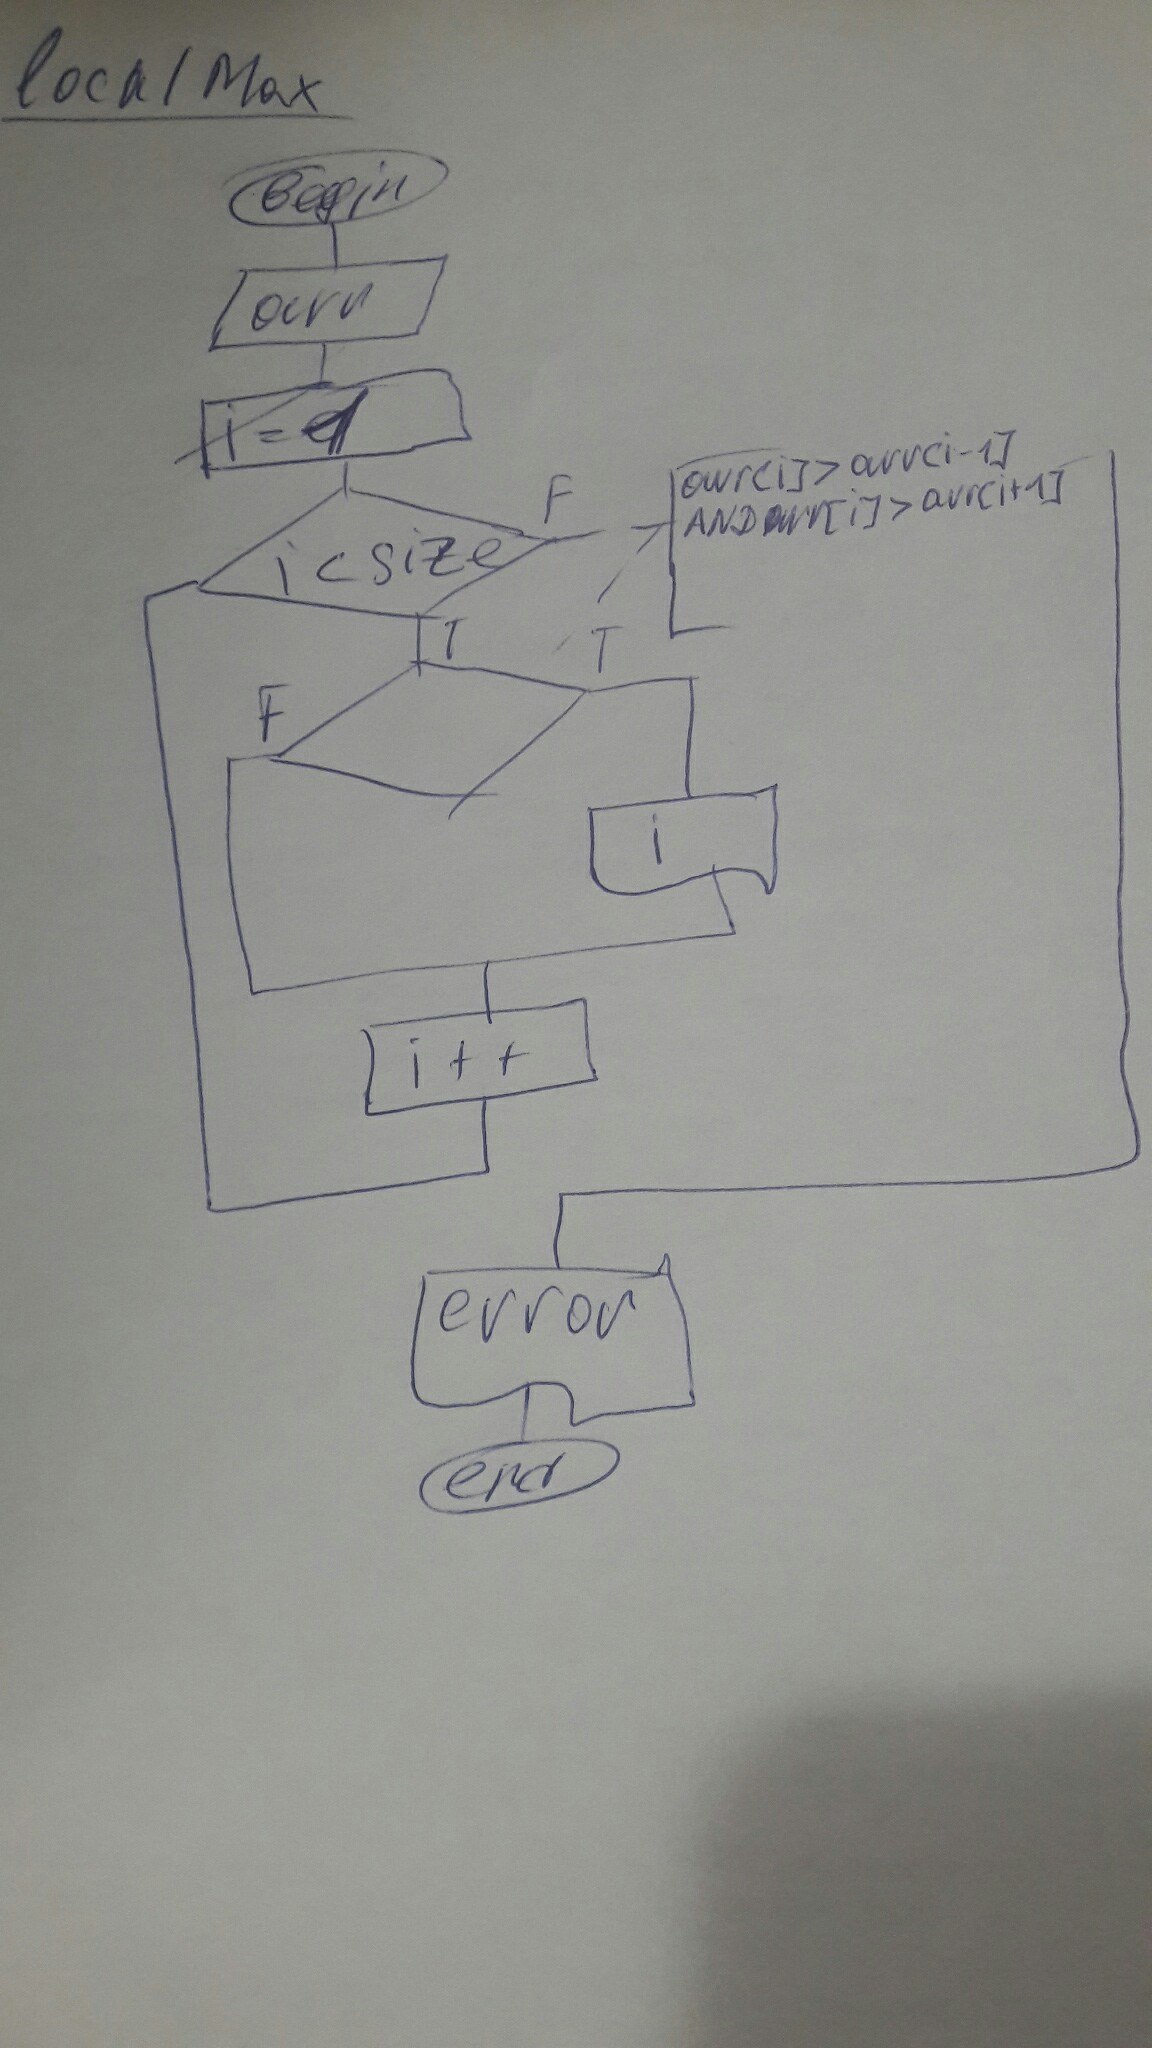 localMax
Begin
arr
i = 1
i < size
F
arr[i] > arr[i-1]
AND arr[i] > arr[i+1]
T
T
F
i
i + +
error
end